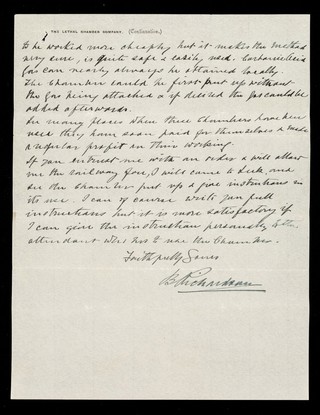 THE LETHAL CHAMBER COMPANY. (Continuation.)
to be worked more cheaply but it makes the method
very sure, is quite safe & easily used. Carbonic Acid
Gas can nearly always be obtained locally.
The Chamber could be first put up without
the Gas being attached & if desired the Gas could be
added afterwards.
In many places where these Chambers have been
used they have soon paid for themselves & made
a regular profit on their working.
If you entrust me with an order & will allow
me the railway fare, I will come to Leek and
see the Chamber put up & give instructions in
its use. I can of course write you full
instructions but it is more satisfactory if
I can give the instruction personally to the
attendant who has to use the Chamber.
Faithfully Yours
B Richardson